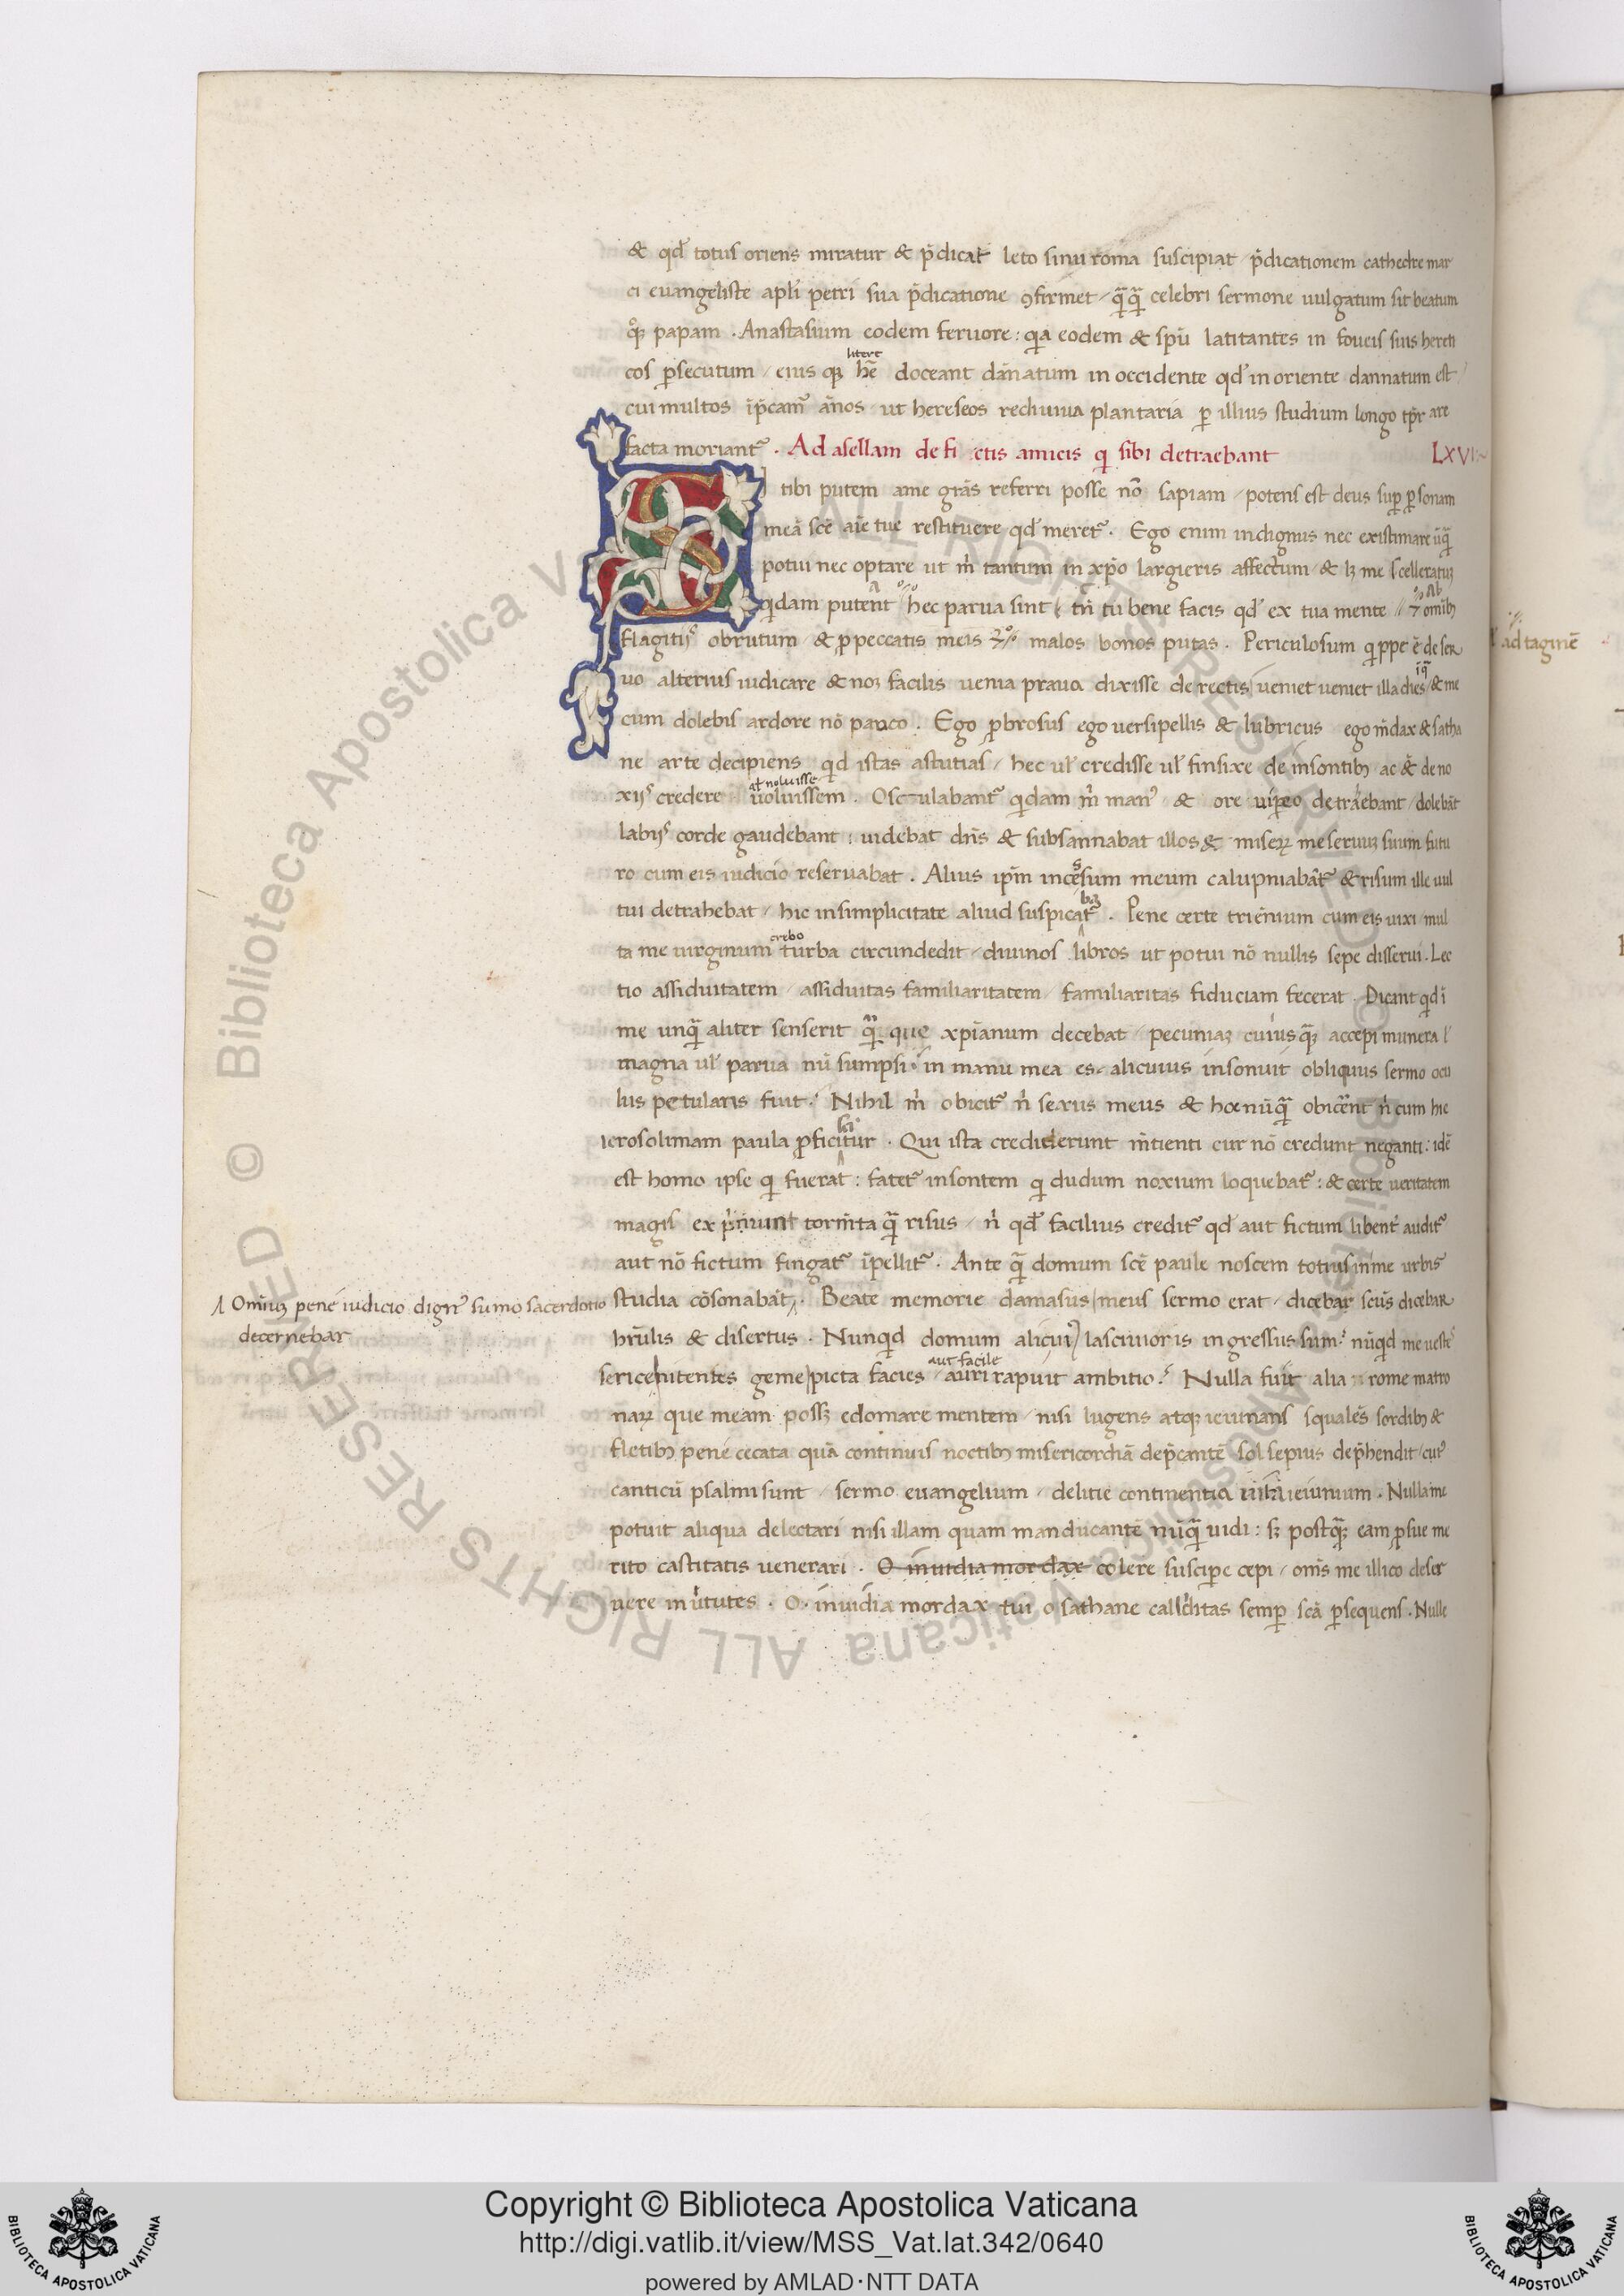 & qd̄ totus oriens miratur & p̄dicat leto sinu roma suscipiat p̄dicationem cathedre mar
ci euangeliste apl̄i petri sua p̄dicatione ꝯfirmet q̄q̄ celebri sermone uulgatum sit beatum
qꝫ papam . Anastasium eodem feruore : qia eodem & spū latitantes in foueis suis hereti
litere
cos ꝑsecutum eius qꝫ hē doceant dānatum in occidente qd̄ in oriente dannatum est
cui multos īp̄cam̄ ānos ut hereseos rediuiua plantaria ꝑ illius studium longo tp̄r are
facta moriant᷑ . Ad asellam de fi ctis amicis qi sibi detraebant LXVI
S I tibi putem ame grās referri posse nō sapiam potens est deus suꝑ ꝑsonam
meā scē aīe tue restituere qd̄ meret᷑ . Ego enim indignus nec existimare ūq̄
potui nec optare ut m̄ tantum in xp̄o largieris affectum & lꝫ me scelleratuꝫ
qidam putent hec parua sint tn̄ tu bene facis qd̄ ex tua mente omībꝫ
flagitijs obrutum & ꝓ peccatis meis malos bonos putas . Periculosum qippe ē de ser
uo alterius iudicare & noꝫ facilis uenia praua dixisse de rectis ueniet ueniet illa dies & me
cum dolebis ardore nō pauco . Ego ꝓbrosus ego uersipellis & lubricus ego m̄dax & satha
ne arte decipiens qid istas astutias hec ul̄ credisse ul̄ finsixe de insontibꝫ ac de no
at noluisse
xijs credere uoluissem . Osculabant᷑ qidam m̄ man᷒ & ore uiꝑeo detraebant dolebāt
labijs corde gaudebant : uidebat dn̄s & subsannabat illos & miseꝝ me seruuꝫ suum futu
ro cum eis iudicio reseruabat . Alius ip̄m incesum meum calupniabāt᷑ & risum ille uul
tui detrahebat hic in simplicitate aliud suspicat᷑ . Pene certe triēnium cum eis uixi mul
crebo
ta me uirginum turba circundedit diuinos libros ut potui nō nullis sepe disserui . Lec
tio assiduitatem assiduitas familiaritatem familiaritas fiduciam fecerat . Dicant qd ī
me unq̄ aliter senserit q̄ que xp̄ianum decebat pecuniaꝫ cuiusq̄ꝫ accepi munera ł
magna ul̄ parua nū sumpsi in manu mea es alicuius insonuit obliquus sermo ocu
lus petularis fuit . Nihil m̄ obicit᷑ n̄ sexus meus & hoc nūq̄ obicent n̄ cum hie
ierosolimam paula ꝓficitur . Qui ista crediderunt m̄tienti cur nō credunt neganti : idē
est homo ipse qi fuerat : fatet᷑ insontem qi dudum noxium loquebat᷑ : & certe ueritatem
magis expimunt torm̄ta q̄ risus n̄ qd̄ facilius credit᷑ qd̄ aut fictum libent᷑ audit᷑
aut nō fictum fingat᷑ īpellit᷑ . Ante q̄ domum scē paule noscem totius in me urbis
Omniuꝫ pene iudicio dign᷒ sumo sacerdotio
decernebar
studia cōsonabāt . Beate memorie damasus meus sermo erat dicebar scūs dicebar
hūilis & disertus . Nunqid domum alicui᷒ lasciuioris ingressus sum nūqid me ueste
aut facile
serice nitentes geme picta facies auri rapuit ambitio . Nulla fuit alia rome matro
naꝝ que meam possꝫ edomare mentem nisi lugens atqꝫ ieiunans squalēs sordibꝫ &
fletibꝫ pene cecata quā continuis noctibꝫ misericordiā dep̄cantē sol sepius dep̄hendit cui᷒
canticū psalmi sunt sermo euangelium delitie continentia uita ieiunium . Nulla me
potuit aliqua delectari nisi illam quam manducantē nūq̄ uidi : sꝫ postq̄ꝫ eam ꝓ sue me
rito castitatis uenerari . O inuidia mordax colere susciꝑe cepi om̄s me illico deser
uere uirtutes . O inuidia mordax tui o sathane calliditas semꝑ scā ꝑsequens . Nulle
ad tag inē
© Biblioteca Apostolica Vaticana ALL RIGHTS RESERVED
© Biblioteca Apostolica Vaticana ALL RIGHTS RESERVED
BIBLIOTECA APOSTOLICA VATICANA
Copyright © Biblioteca Apostolica Vaticana
http://digi.vatlib.it/view/MSS_Vat.lat.342/0640
powered by AMLAD·NTT DATA
BIBLIOTECA APOSTOLICA VATICANA